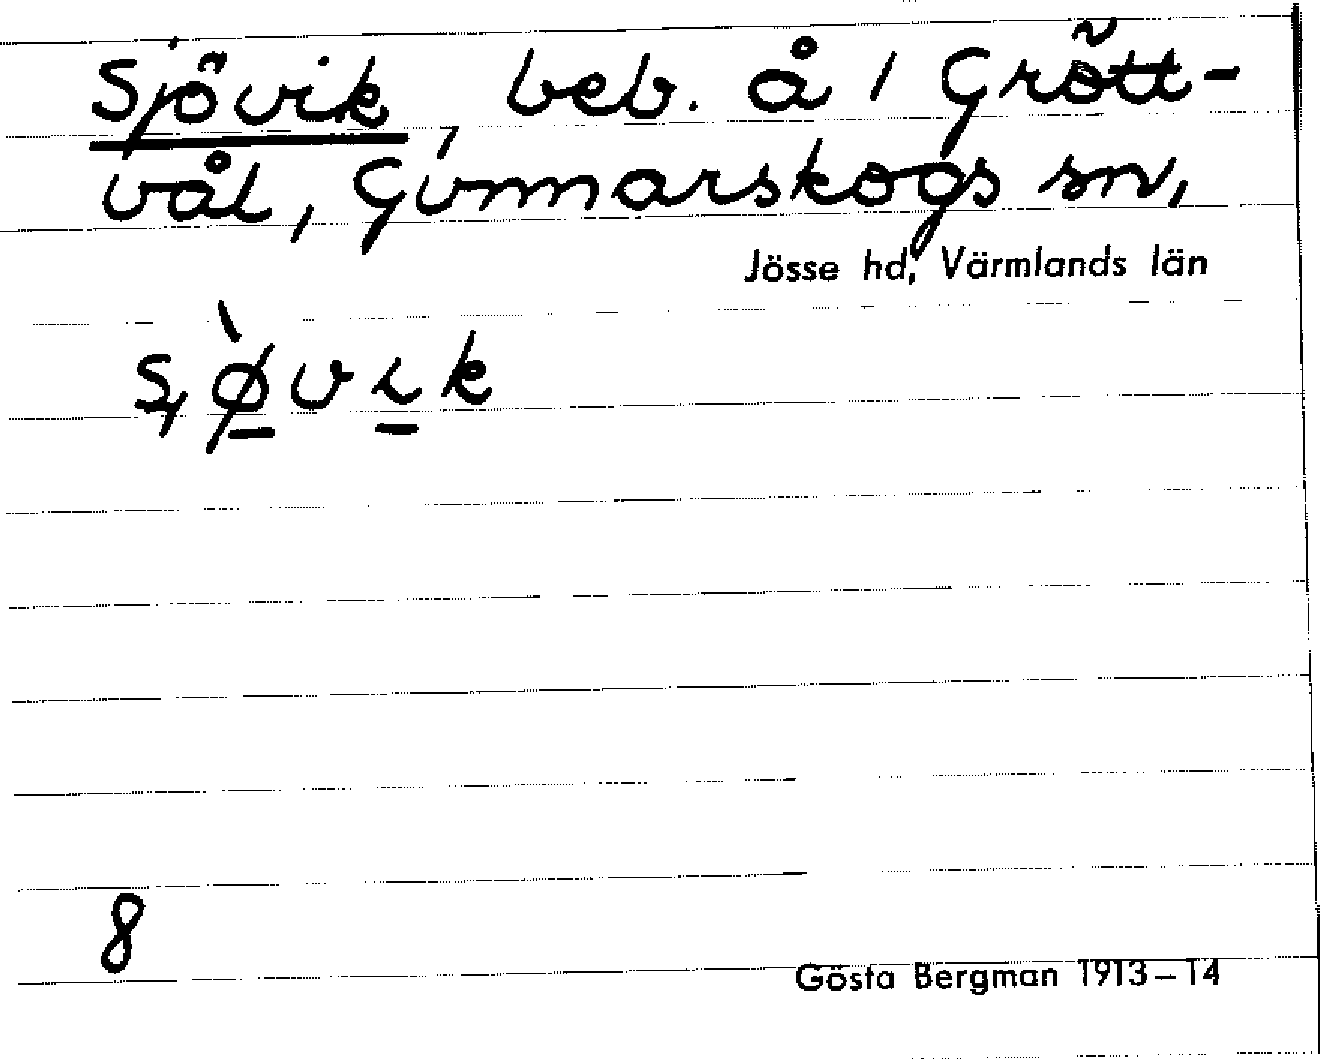 Sjövik, beb. å 1 Grött-
vål, Gunnarskogs sn,
Jösse hd, Värmlands län
8
Gösta Bergman 1913–14